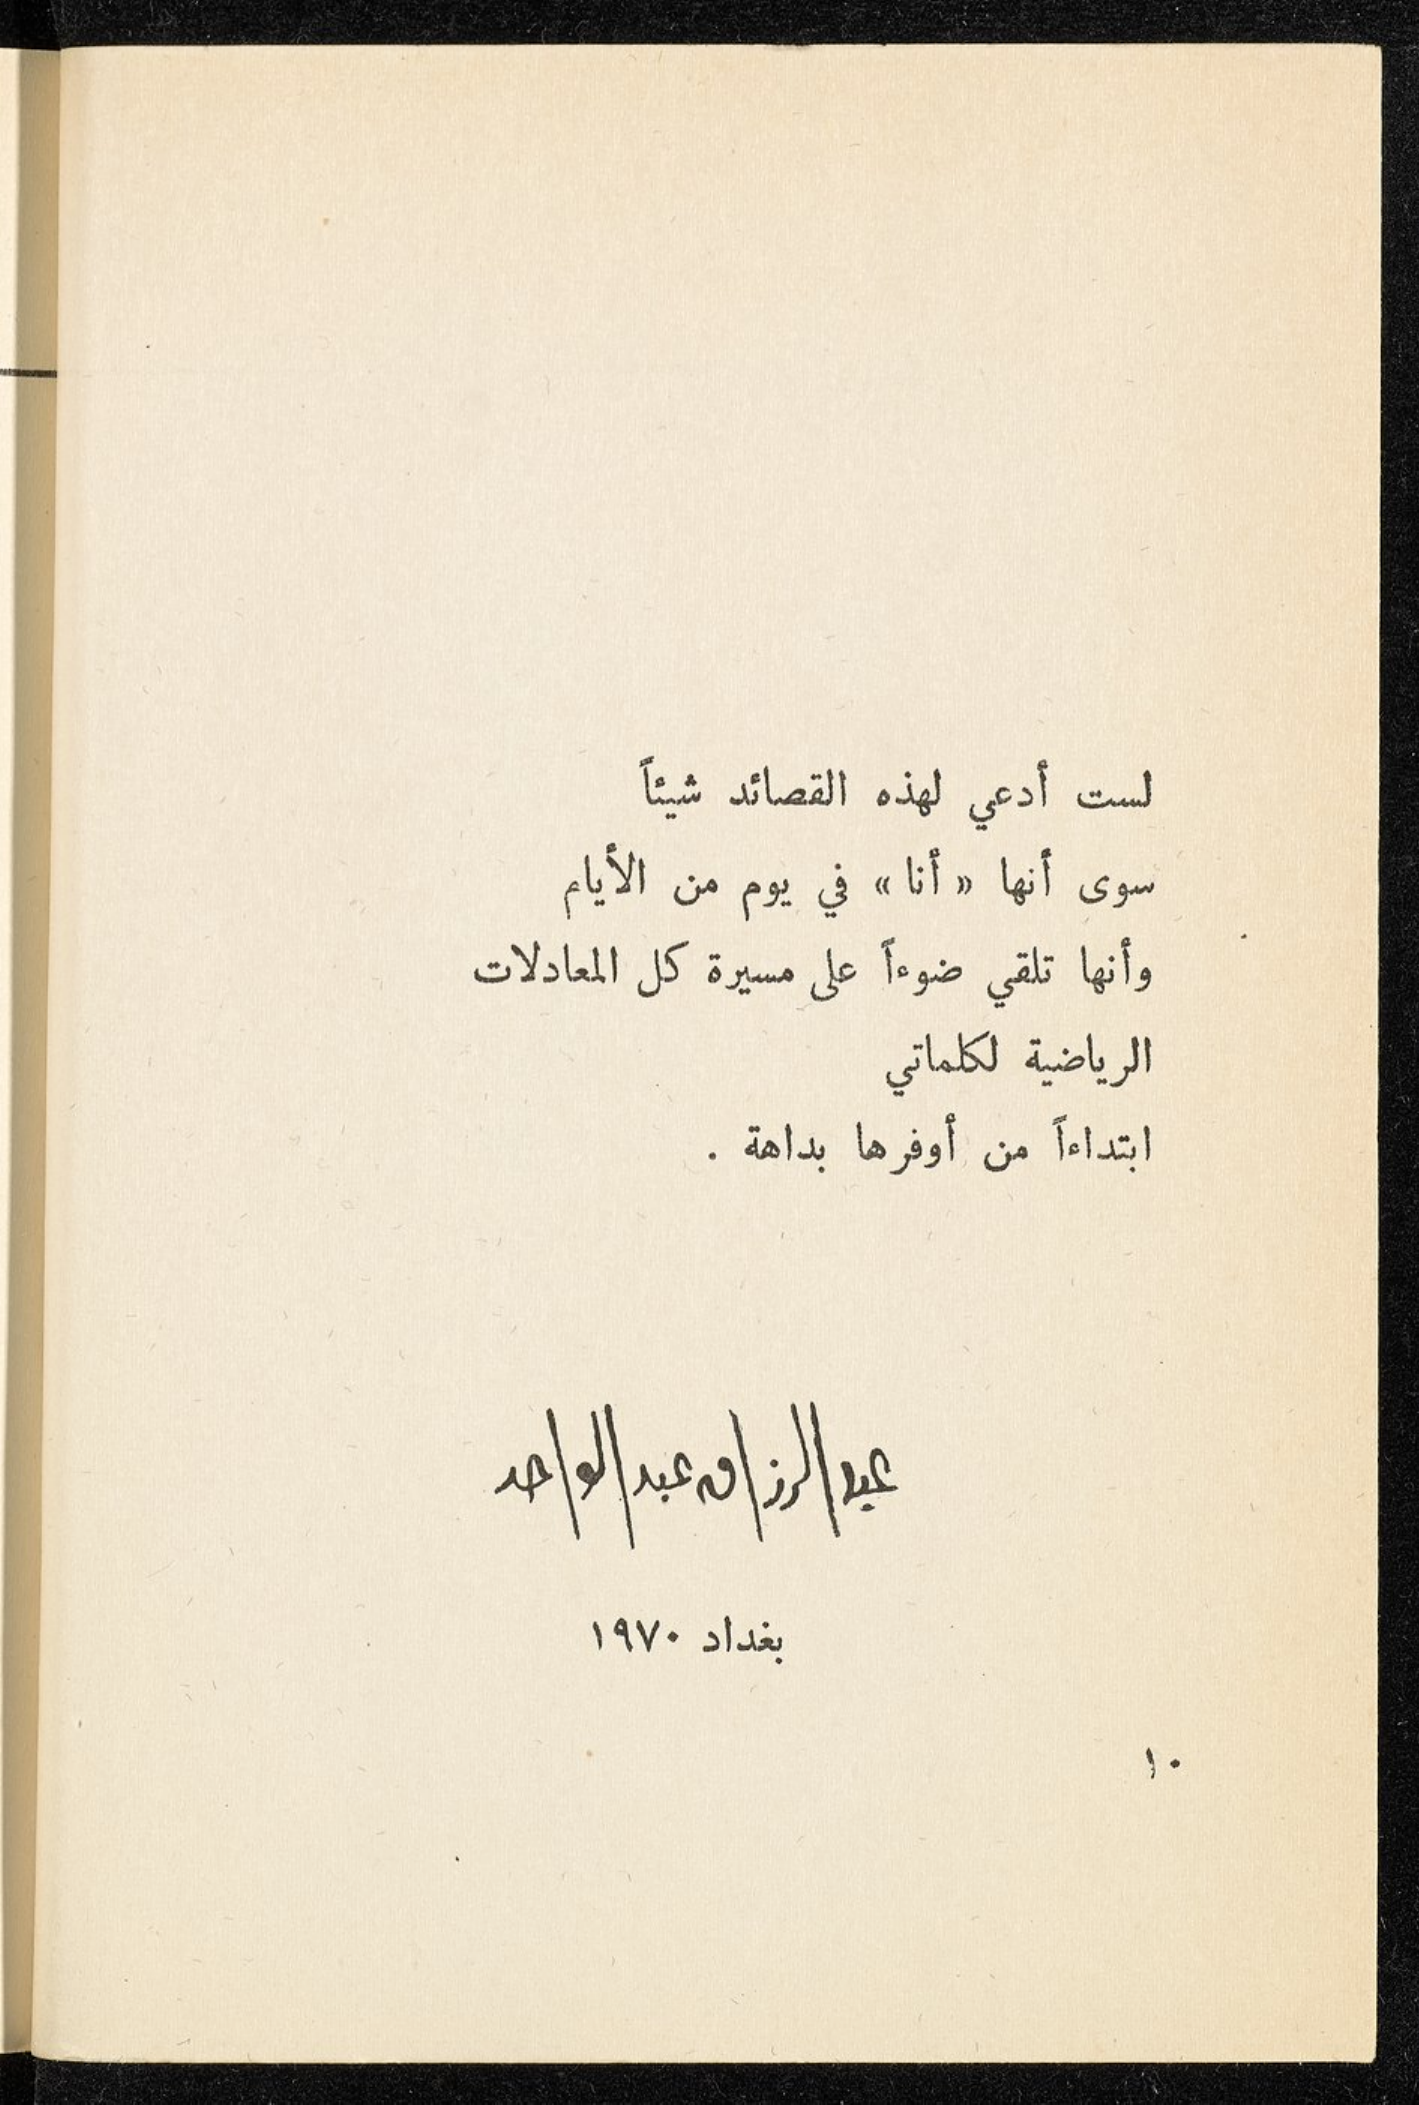 لست أدعي لهذه القصائد شيئاً
سوى أنها «أنا» في يوم من الأيام
وأنها تلقي ضوءاً على مسيرة كل المعادلات
الرياضية لكلماتي
ابتداءاً من أوفرها بداهة .
عبد الرزاق عبد الواحد
بغداد ١٩٧٠
١٠